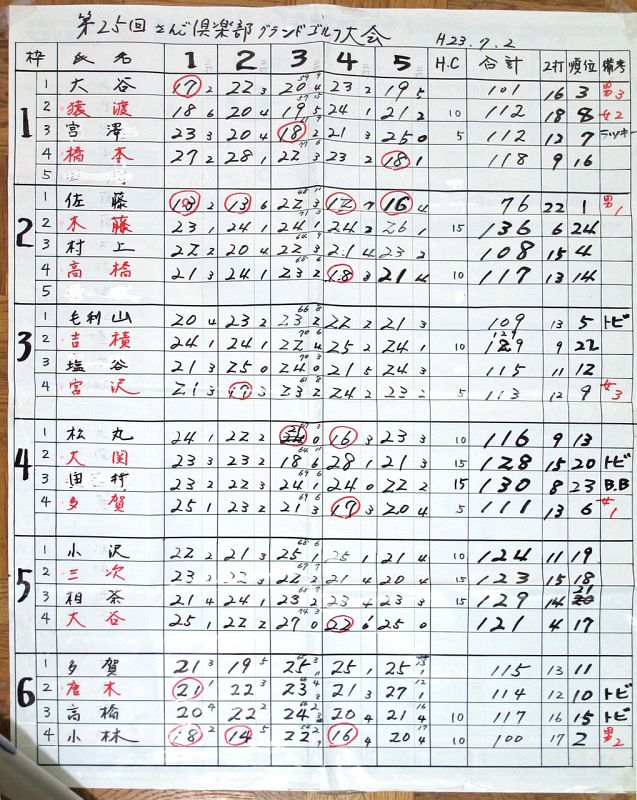 第25回 さんご倶楽部グランドゴルフ大会 H23.7.2
枠 氏名 1 2 3 4 5 H.C 合計 2打 順位 備考
1
1 大谷 17 2 22 3 20 4 23 2 19 5 101 16 3 男3
2 猿渡 18 6 20 4 19 5 24 1 21 2 10 112 18 8 女2
3 宮澤 23 3 20 4 18 2 21 3 25 0 5 112 12 7 ラッキー
4 橋本 27 2 28 1 22 3 23 2 18 1 118 9 16
5
2
1 佐藤 2 13 6 22 3 12 7 16 4 76 22 1 男1
2 木藤 23 1 24 1 24 1 24 2 26 1 15 136 6 24
3 村上 22 2 20 4 22 3 21 4 23 2 108 15 4
4 高橋 21 3 24 1 23 2 18 3 21 4 10 117 13 14
5
3
1 毛利山 20 4 23 2 23 2 22 2 21 3 109 13 5 トビ
2 吉積 24 1 24 1 22 4 25 2 24 1 10 129 9 22
3 塩谷 21 3 25 0 24 0 21 5 24 3 115 11 12
4 宮沢 21 3 17 3 23 2 24 2 23 2 5 113 12 9 女3
4
1 松丸 24 1 22 2 21 0 16 3 23 3 10 116 9 13
2 大関 23 3 23 2 18 6 28 1 21 3 15 128 15 20 トビ
3 田村 23 2 22 3 24 1 24 0 22 2 15 130 8 23 B.B
4 多賀 25 1 23 2 21 3 17 3 20 4 5 111 13 6 女1
5
1 小沢 22 2 21 3 25 1 25 1 21 4 10 124 11 19
2 三次 23 2 22 3 22 2 21 4 20 4 15 123 15 18
3 相茶 21 4 24 1 23 2 23 4 23 3 15 129 14 21
4 大谷 25 1 22 2 27 0 22 25 0 121 4 17
6
1 多賀 21 3 19 5 25 25 1 25 1 115 13 11
2 唐木 21 1 22 3 23 21 3 27 1 114 12 10 トビ
3 高橋 20 4 22 2 24 20 4 21 4 10 117 16 15 トビ
4 小林 18 2 14 5 22 16 4 20 4 10 100 17 2 男2